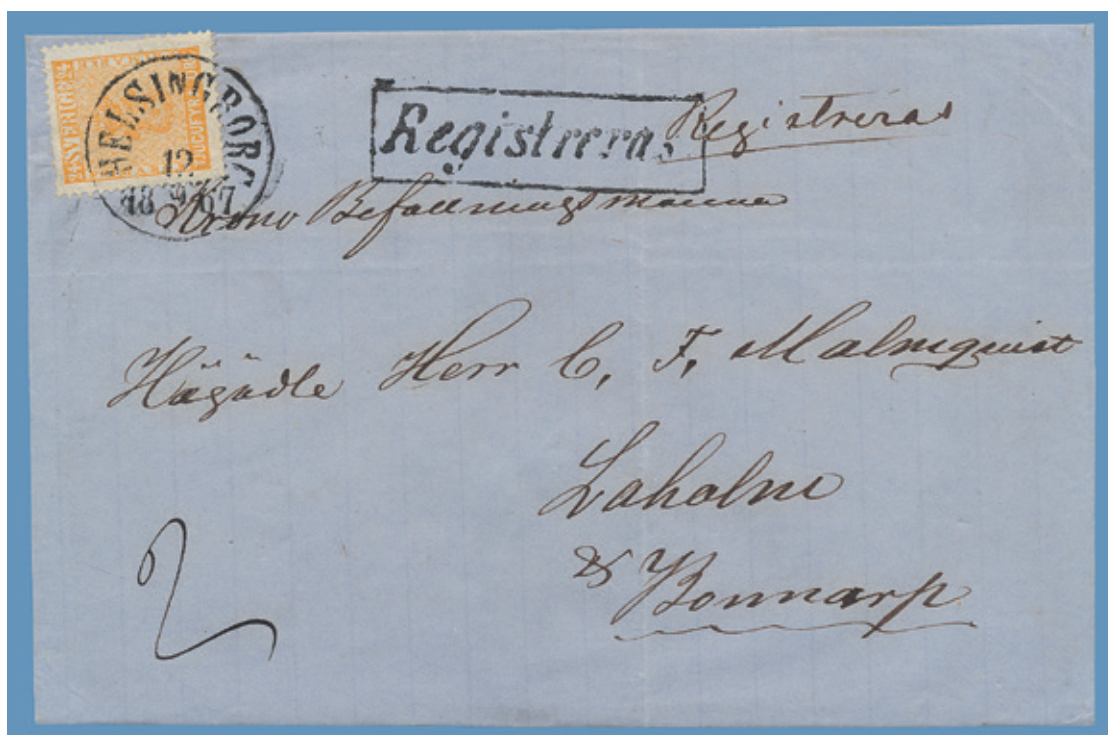 SVERIGE
TJUGUFYRA
HELSINGBORG
12
18 67
Registreras
Registreras
Krono Befallningsmannen
Högädle Herr C. F. Malmquist
Laholm
& Bonnarp
2